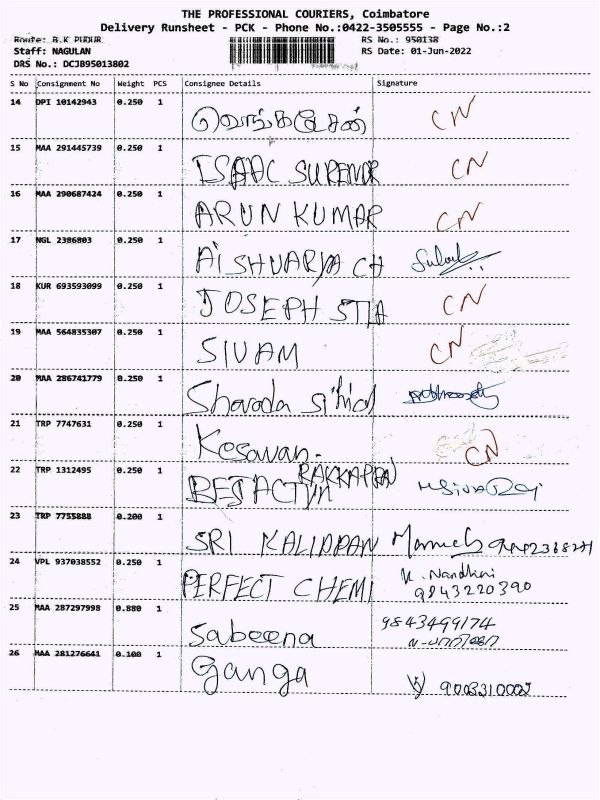 THE PROFESSIONAL COURIERS, Coimbatore
Delivery Runsheet - PCK - Phone No.:0422-3505555 - Page No.:2
Route: B.K PUDUR RS No.: 950138
Staff: NAGULAN RS Date: 01-Jun-2022
DRS No.: DCJB95013802
S No Consignment No Weight PCS Consignee Details Signature
14 DPI 10142943 0.250 1 CN
15 MAA 291445739 0.250 1 ISAAC SURENDR CN
16 MAA 290687424 0.250 1 ARUN KUMAR CN
17 NGL 2386803 0.250 1 AISHVARYA CH
18 KUR 693593099 0.250 1 JOSEPH STA CN
19 MAA 564835307 0.250 1 SIVAM CN
20 MAA 286741779 0.250 1 Sharada
21 TRP 7747631 0.250 1 Kesavan. CN
22 TRP 1312495 0.250 1
23 TRP 7755888 0.200 1 SRI KALIPPAN
24 VPL 937038552 0.250 1 PERFECT CHEMI K. Nandhini
9843220390
25 MAA 287297998 0.880 1 Sabeena 9843499174
26 MAA 281276641 0.100 1 Ganga 9003310002